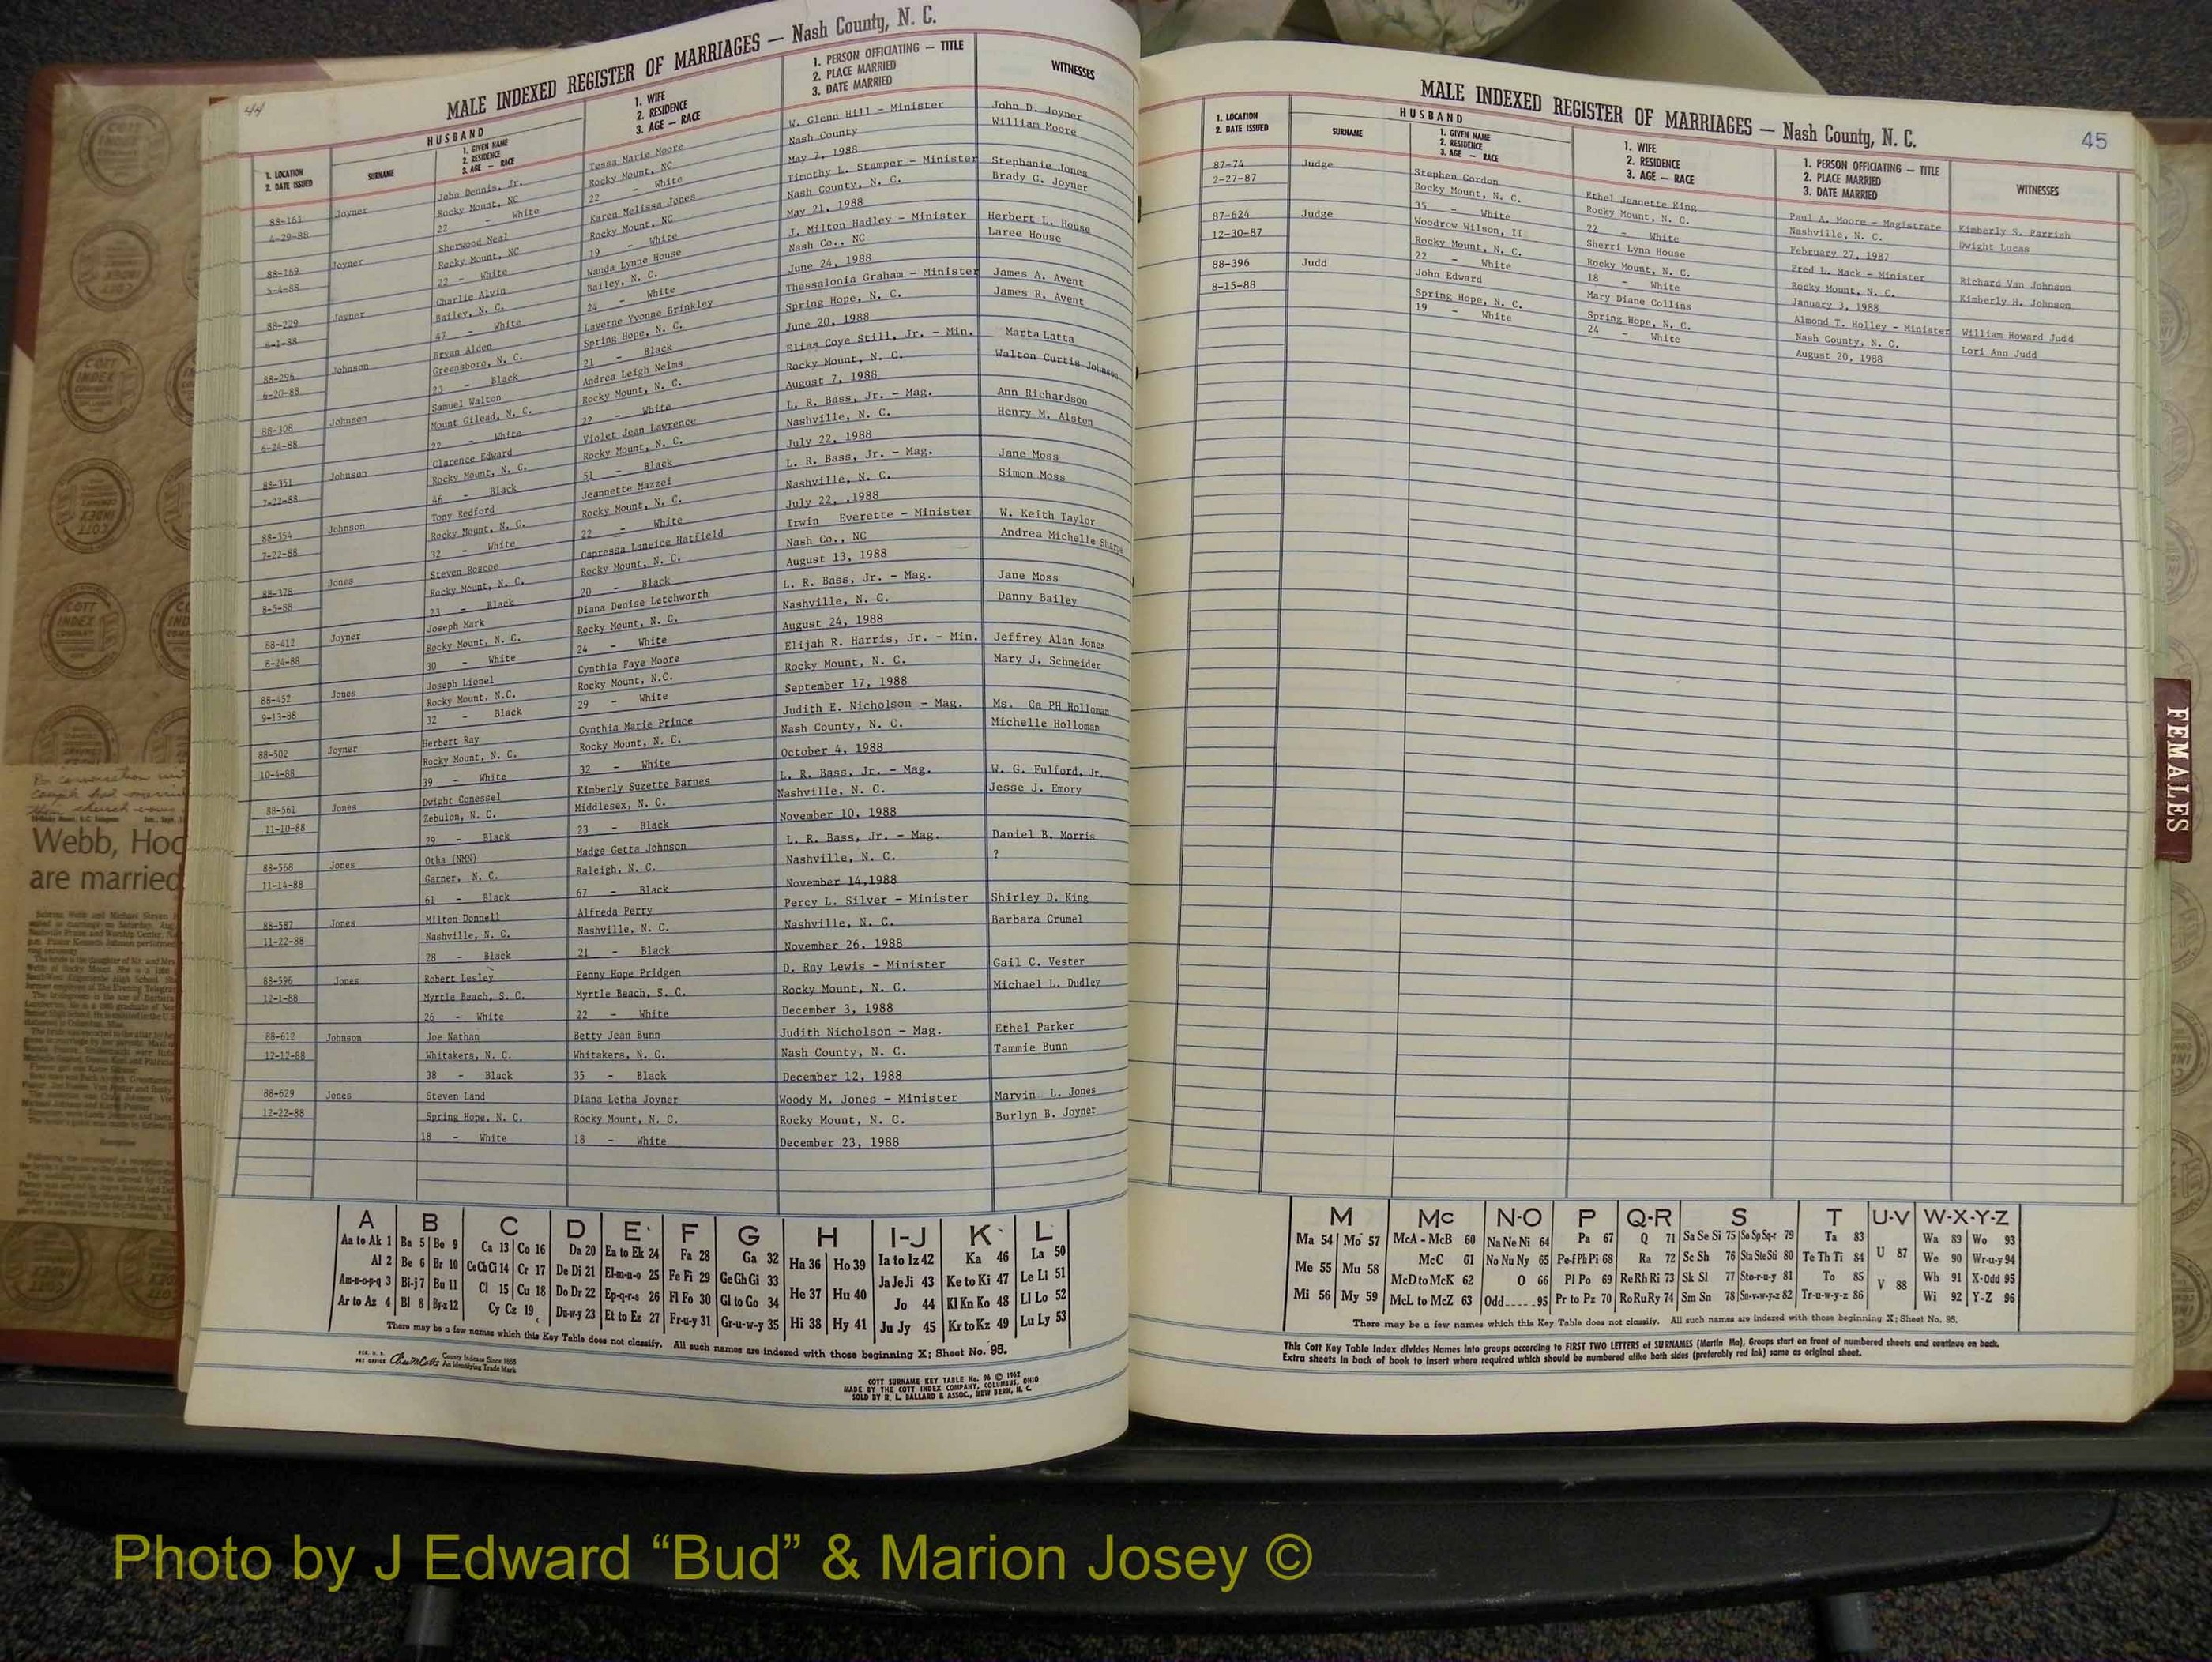 44
MALE INDEXED REGISTER OF MARRIAGES — Nash County, N. C.
1. LOCATION
2. DATE ISSUED
HUSBAND
SURNAME
1. GIVEN NAME
2. RESIDENCE
3. AGE — RACE
1. WIFE
2. RESIDENCE
3. AGE — RACE
1. PERSON OFFICIATING — TITLE
2. PLACE MARRIED
3. DATE MARRIED
WITNESSES
88-161 Joyner John Dennis, Jr. Tessa Marie Moore W. Glenn Hill - Minister John D. Joyner
4-29-88 Rocky Mount, NC Rocky Mount, NC Nash County William Moore
22 - White 22 - White May 7, 1988
88-169 Joyner Sherwood Neal Karen Melissa Jones Timothy L. Stamper - Minister Stephanie Jones
5-4-88 Rocky Mount, NC Rocky Mount, NC Nash County, N. C. Brady G. Joyner
22 - White 19 - White May 21, 1988
88-229 Joyner Charlie Alvin Wanda Lynne House J. Milton Hadley - Minister Herbert L. House
6-1-88 Bailey, N. C. Bailey, N. C. Nash Co., NC Laree House
47 - White 24 - White June 24, 1988
88-296 Johnson Bryan Alden Laverne Yvonne Brinkley Thessalonia Graham - Minister James A. Avent
6-20-88 Greensboro, N. C. Spring Hope, N. C. Spring Hope, N. C. James R. Avent
23 - Black 21 - Black June 20, 1988
88-308 Johnson Samuel Walton Andrea Leigh Nelms Elias Coye Still, Jr. - Min. Marta Latta
6-24-88 Mount Gilead, N. C. Rocky Mount, N. C. Rocky Mount, N. C. Walton Curtis Johnson
22 - White 22 - White August 7, 1988
88-351 Johnson Clarence Edward Violet Jean Lawrence L. R. Bass, Jr. - Mag. Ann Richardson
7-22-88 Rocky Mount, N. C. Rocky Mount, N. C. Nashville, N. C. Henry M. Alston
46 - Black 51 - Black July 22, 1988
88-354 Johnson Tony Redford Jeannette Mazzei L. R. Bass, Jr. - Mag. Jane Moss
7-22-88 Rocky Mount, N. C. Rocky Mount, N. C. Nashville, N. C. Simon Moss
32 - White 22 - White July 22, .1988
88-378 Jones Steven Roscoe Capressa Laneice Hatfield Irwin Everette - Minister W. Keith Taylor
8-5-88 Rocky Mount, N. C. Rocky Mount, N. C. Nash Co., NC Andrea Michelle Sharpe
23 - Black 20 - Black August 13, 1988
88-412 Joyner Joseph Mark Diana Denise Letchworth L. R. Bass, Jr. - Mag. Jane Moss
8-24-88 Rocky Mount, N. C. Rocky Mount, N. C. Nashville, N. C. Danny Bailey
30 - White 24 - White August 24, 1988
88-452 Jones Joseph Lionel Cynthia Faye Moore Elijah R. Harris, Jr. - Min. Jeffrey Alan Jones
9-13-88 Rocky Mount, N.C. Rocky Mount, N.C. Rocky Mount, N. C. Mary J. Schneider
32 - Black 29 - White September 17, 1988
88-502 Joyner Herbert Ray Cynthia Marie Prince Judith E. Nicholson - Mag. Ms. Ca PH Holloman
10-4-88 Rocky Mount, N. C. Rocky Mount, N. C. Nash County, N. C. Michelle Holloman
39 - White 32 - White October 4, 1988
88-561 Jones Dwight Conessel Kimberly Suzette Barnes L. R. Bass, Jr. - Mag. W. G. Fulford, Jr.
11-10-88 Zebulon, N. C. Middlesex, N. C. Nashville, N. C. Jesse J. Emory
29 - Black 23 - Black November 10, 1988
88-568 Jones Otha (NMN) Madge Getta Johnson L. R. Bass, Jr. - Mag. Daniel B. Morris
11-14-88 Garner, N. C. Raleigh, N. C. Nashville, N. C. ?
61 - Black 67 - Black November 14,1988
88-587 Jones Milton Donnell Alfreda Perry Percy L. Silver - Minister Shirley D. King
11-22-88 Nashville, N. C. Nashville, N. C. Nashville, N. C. Barbara Crumel
28 - Black 21 - Black November 26, 1988
88-596 Jones Robert Lesley Penny Hope Pridgen D. Ray Lewis - Minister Gail C. Vester
12-1-88 Myrtle Beach, S. C. Myrtle Beach, S. C. Rocky Mount, N. C. Michael L. Dudley
26 - White 22 - White December 3, 1988
88-612 Johnson Joe Nathan Betty Jean Bunn Judith Nicholson - Mag. Ethel Parker
12-12-88 Whitakers, N. C. Whitakers, N. C. Nash County, N. C. Tammie Bunn
38 - Black 35 - Black December 12, 1988
88-629 Jones Steven Land Diana Letha Joyner Woody M. Jones - Minister Marvin L. Jones
12-22-88 Spring Hope, N. C. Rocky Mount, N. C. Rocky Mount, N. C. Burlyn B. Joyner
18 - White 18 - White December 23, 1988
A B C D E F G H I-J K L
Aa to Ak 1 Ba 5 Bo 9 Ca 13 Co 16 Da 20 Ea to Ek 24 Fa 28 Ga 32 Ha 36 Ho 39 Ia to Iz 42 Ka 46 La 50
Al 2 Be 6 Br 10 Ce Ch Ci 14 Cr 17 De Di 21 El-m-n-o 25 Fe Fi 29 Ge Gh Gi 33 He 37 Hu 40 Ja Je Ji 43 Ke to Ki 47 Le Li 51
Am-n-o-p-q 3 Bi-j 7 Bu 11 Cl 15 Cu 18 Do Dr 22 Ep-q-r-s 26 Fl Fo 30 Gl to Go 34 Hi 38 Hy 41 Jo 44 Kl Kn Ko 48 Ll Lo 52
Ar to Az 4 Bl 8 By-z 12 Cy Cz 19 Du-w-y 23 Et to Ez 27 Fr-u-y 31 Gr-u-w-y 35 Ju Jy 45 Kr to Kz 49 Lu Ly 53
There may be a few names which this Key Table does not classify. All such names are indexed with those beginning X; Sheet No. 95.
REG. U. S.
PAT OFFICE
County Indexes Since 1888
An Identifying Trade Mark
COTT SURNAME KEY TABLE No. 96 © 1962
MADE BY THE COTT INDEX COMPANY, COLUMBUS, OHIO
SOLD BY R. L. BALLARD & ASSOC., NEW BERN, N. C.
MALE INDEXED REGISTER OF MARRIAGES — Nash County, N. C.
45
1. LOCATION
2. DATE ISSUED
HUSBAND
SURNAME
1. GIVEN NAME
2. RESIDENCE
3. AGE — RACE
1. WIFE
2. RESIDENCE
3. AGE — RACE
1. PERSON OFFICIATING — TITLE
2. PLACE MARRIED
3. DATE MARRIED
WITNESSES
87-74 Judge Stephen Gordon Ethel Jeanette King Paul A. Moore - Magistrate Kimberly S. Parrish
2-27-87 Rocky Mount, N. C. Rocky Mount, N. C. Nashville, N. C. Dwight Lucas
35 - White 22 - White February 27, 1987
87-624 Judge Woodrow Wilson, II Sherri Lynn House Fred L. Mack - Minister Richard Van Johnson
12-30-87 Rocky Mount, N. C. Rocky Mount, N. C. Rocky Mount, N. C. Kimberly H. Johnson
22 - White 18 - White January 3, 1988
88-396 Judd John Edward Mary Diane Collins Almond T. Holley - Minister William Howard Judd
8-15-88 Spring Hope, N. C. Spring Hope, N. C. Nash County, N. C. Lori Ann Judd
19 - White 24 - White August 20, 1988
M Mc N-O P Q-R S T U-V W-X-Y-Z
Ma 54 Mo 57 McA - McB 60 Na Ne Ni 64 Pa 67 Q 71 Sa Se Si 75 So Sp Sq-r 79 Ta 83 U 87 Wa 89 Wo 93
Me 55 Mu 58 McC 61 No Nu Ny 65 Pe-f Ph Pi 68 Ra 72 Sc Sh 76 Sta Ste Sti 80 Te Th Ti 84 V 88 We 90 Wr-u-y 94
Mi 56 My 59 McD to McK 62 O 66 Pl Po 69 Re Rh Ri 73 Sk Sl 77 Sto-r-u-y 81 To 85 Wh 91 X-Odd 95
McL to McZ 63 Odd.....95 Pr to Pz 70 Ro Ru Ry 74 Sm Sn 78 Su-v-w-y-z 82 Tr-u-w-y-z 86 Wi 92 Y-Z 96
There may be a few names which this Key Table does not classify. All such names are indexed with those beginning X; Sheet No. 95.
This Cott Key Table Index divides Names into groups according to FIRST TWO LETTERS of SURNAMES (Martin Ma), Groups start on front of numbered sheets and continue on back.
Extra sheets in back of book to insert where required which should be numbered alike both sides (preferably red ink) same as original sheet.
FEMALES
Webb, Hoo
are married
Photo by J Edward “Bud” & Marion Josey ©